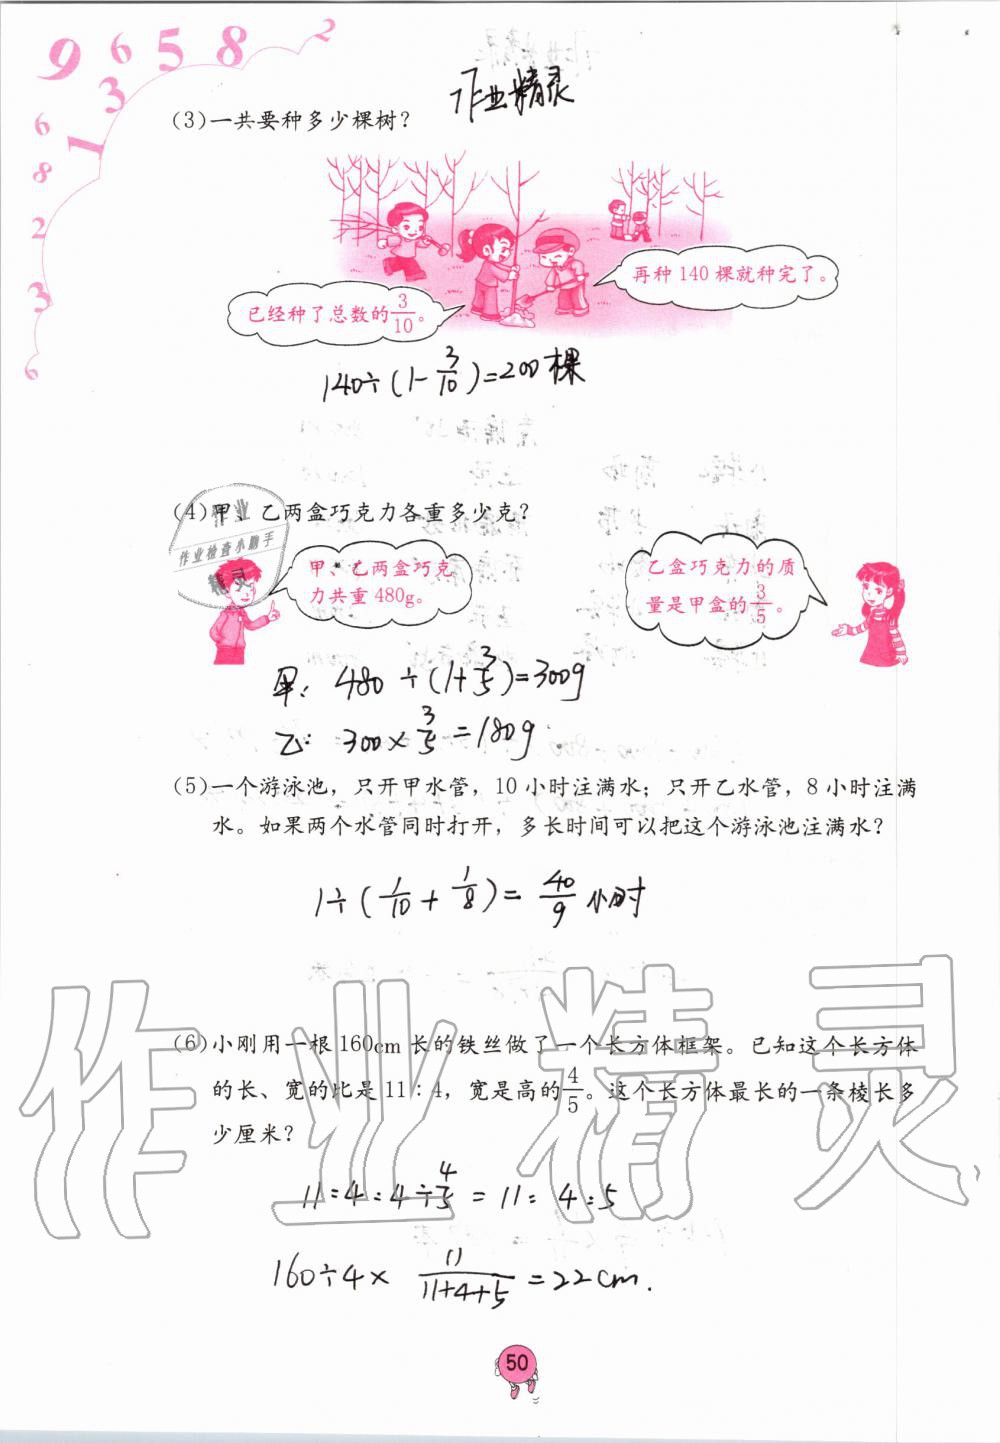 9 6 5 8 2
3
1
6
8
2
3
6
作业精灵
(3)一共要种多少棵树?
再种 140 棵就种完了。
已经种了总数的3/10。
140÷(1-3/10)=200棵
(4)甲、乙两盒巧克力各重多少克?
作业
作业检查小助手
精灵
甲、乙两盒巧克
力共重 480g。
乙盒巧克力的质
量是甲盒的3/5。
甲: 480÷(1+3/5)=300g
乙: 300×3/5=180g
(5)一个游泳池，只开甲水管，10 小时注满水；只开乙水管，8 小时注满
水。如果两个水管同时打开，多长时间可以把这个游泳池注满水?
1÷(1/10+1/8)=40/9小时
作业精灵
(6)小刚用一根160cm 长的铁丝做了一个长方体框架。已知这个长方体
的长、宽的比是 11∶4，宽是高的4/5。这个长方体最长的一条棱长多
少厘米?
11:4:4÷4/5=11:4:5
160÷4×11/(11+4+5)=22cm.
50